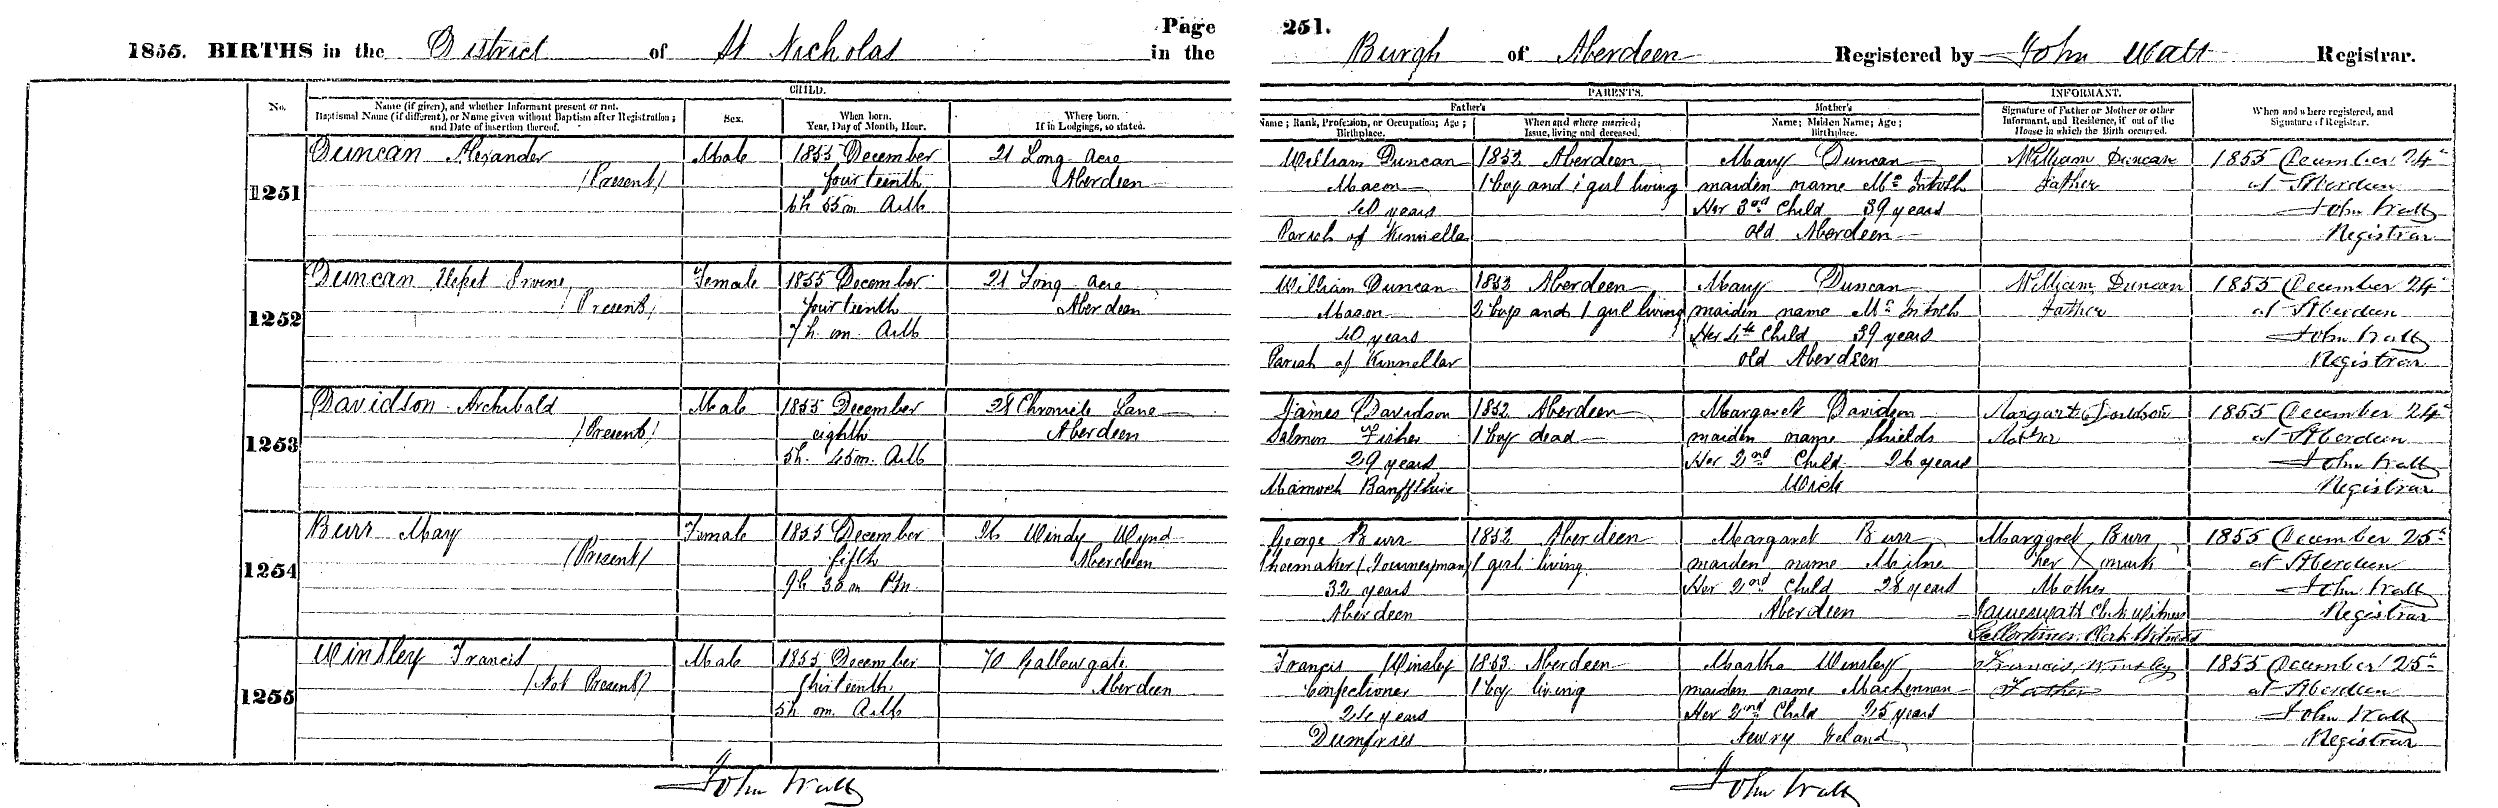 Page 251.
1855. BIRTHS in the District of St Nicholas in the Burgh of Aberdeen Registered by John Watt Registrar.
CHILD. PARENTS. INFORMANT.
No.
Name (if given), and whether Informant present or not.
Baptismal Name (if different), or Name given without Baptism after Registration;
and Date of insertion thereof.
Sex.
When born.
Year, Day of Month, Hour.
Where born.
If in Lodgings, so stated.
Father's
Name; Rank, Profession, or Occupation; Age;
Birthplace.
When and where married;
Issue, living and deceased.
Mother's
Name; Maiden Name; Age;
Birthplace.
Signature of Father or Mother or other
Informant, and Residence, if out of the
House in which the Birth occurred.
When and where registered, and
Signature of Registrar.
1251
Duncan Alexander
(Present)
Male
1855 December
fourteenth
6h 55m AM
21 Long Acre
Aberdeen
William Duncan
Mason
40 years
Parish of Kinnella
1852 Aberdeen
1 boy and 1 girl living
Mary Duncan
maiden name McIntosh
Her 3rd Child 39 years
Old Aberdeen
William Duncan
Father
1855 December 24th
at Aberdeen
John Watt
Registrar
1252
Duncan Irvine
(Present)
Female
1855 December
fourteenth
7h. m. AM
21 Long Acre
Aberdeen
William Duncan
Mason
40 years
Parish of Kinnellar
1852 Aberdeen
2 boys and 1 girl living
Mary Duncan
maiden name McIntosh
Her 4th Child 39 years
Old Aberdeen
William Duncan
Father
1855 December 24th
at Aberdeen
John Watt
Registrar
1253
Davidson Archibald
(Present)
Male
1855 December
eighth
5h. 45m. AM
28 Chronicle Lane
Aberdeen
James Davidson
Salmon Fisher
29 years
Marnoch Banffshire
1852 Aberdeen
1 boy dead
Margaret Davidson
maiden name Shields
Her 2nd Child 26 years
Wick
Margart Davidson
Mother
1855 December 24th
at Aberdeen
John Watt
Registrar
1254
Burr Mary
(Present)
Female
1855 December
fifth
9h 30m PM.
36 Windy Wynd
Aberdeen
George Burr
Shoemaker (Journeyman)
32 years
Aberdeen
1852 Aberdeen
1 girl living
Margaret Burr
maiden name Milne
Her 2nd Child 28 years
Aberdeen
Margaret Burr
her X mark
Mother
James Watt Clerk Witness
Clerk Witness
1855 December 25th
at Aberdeen
John Watt
Registrar
1255
Winsley Francis
(Not Present)
Male
1855 December
thirteenth
5h om. AM
70 Gallowgate
Aberdeen
Francis Winsley
Confectioner
24 years
Dumfries
1853 Aberdeen
1 boy living
Martha Winsley
maiden name Mackennan
Her 2nd Child 25 years
Newry Ireland
Francis Winsley
Father
1855 December 25th
at Aberdeen
John Watt
Registrar
John Watt
John Watt